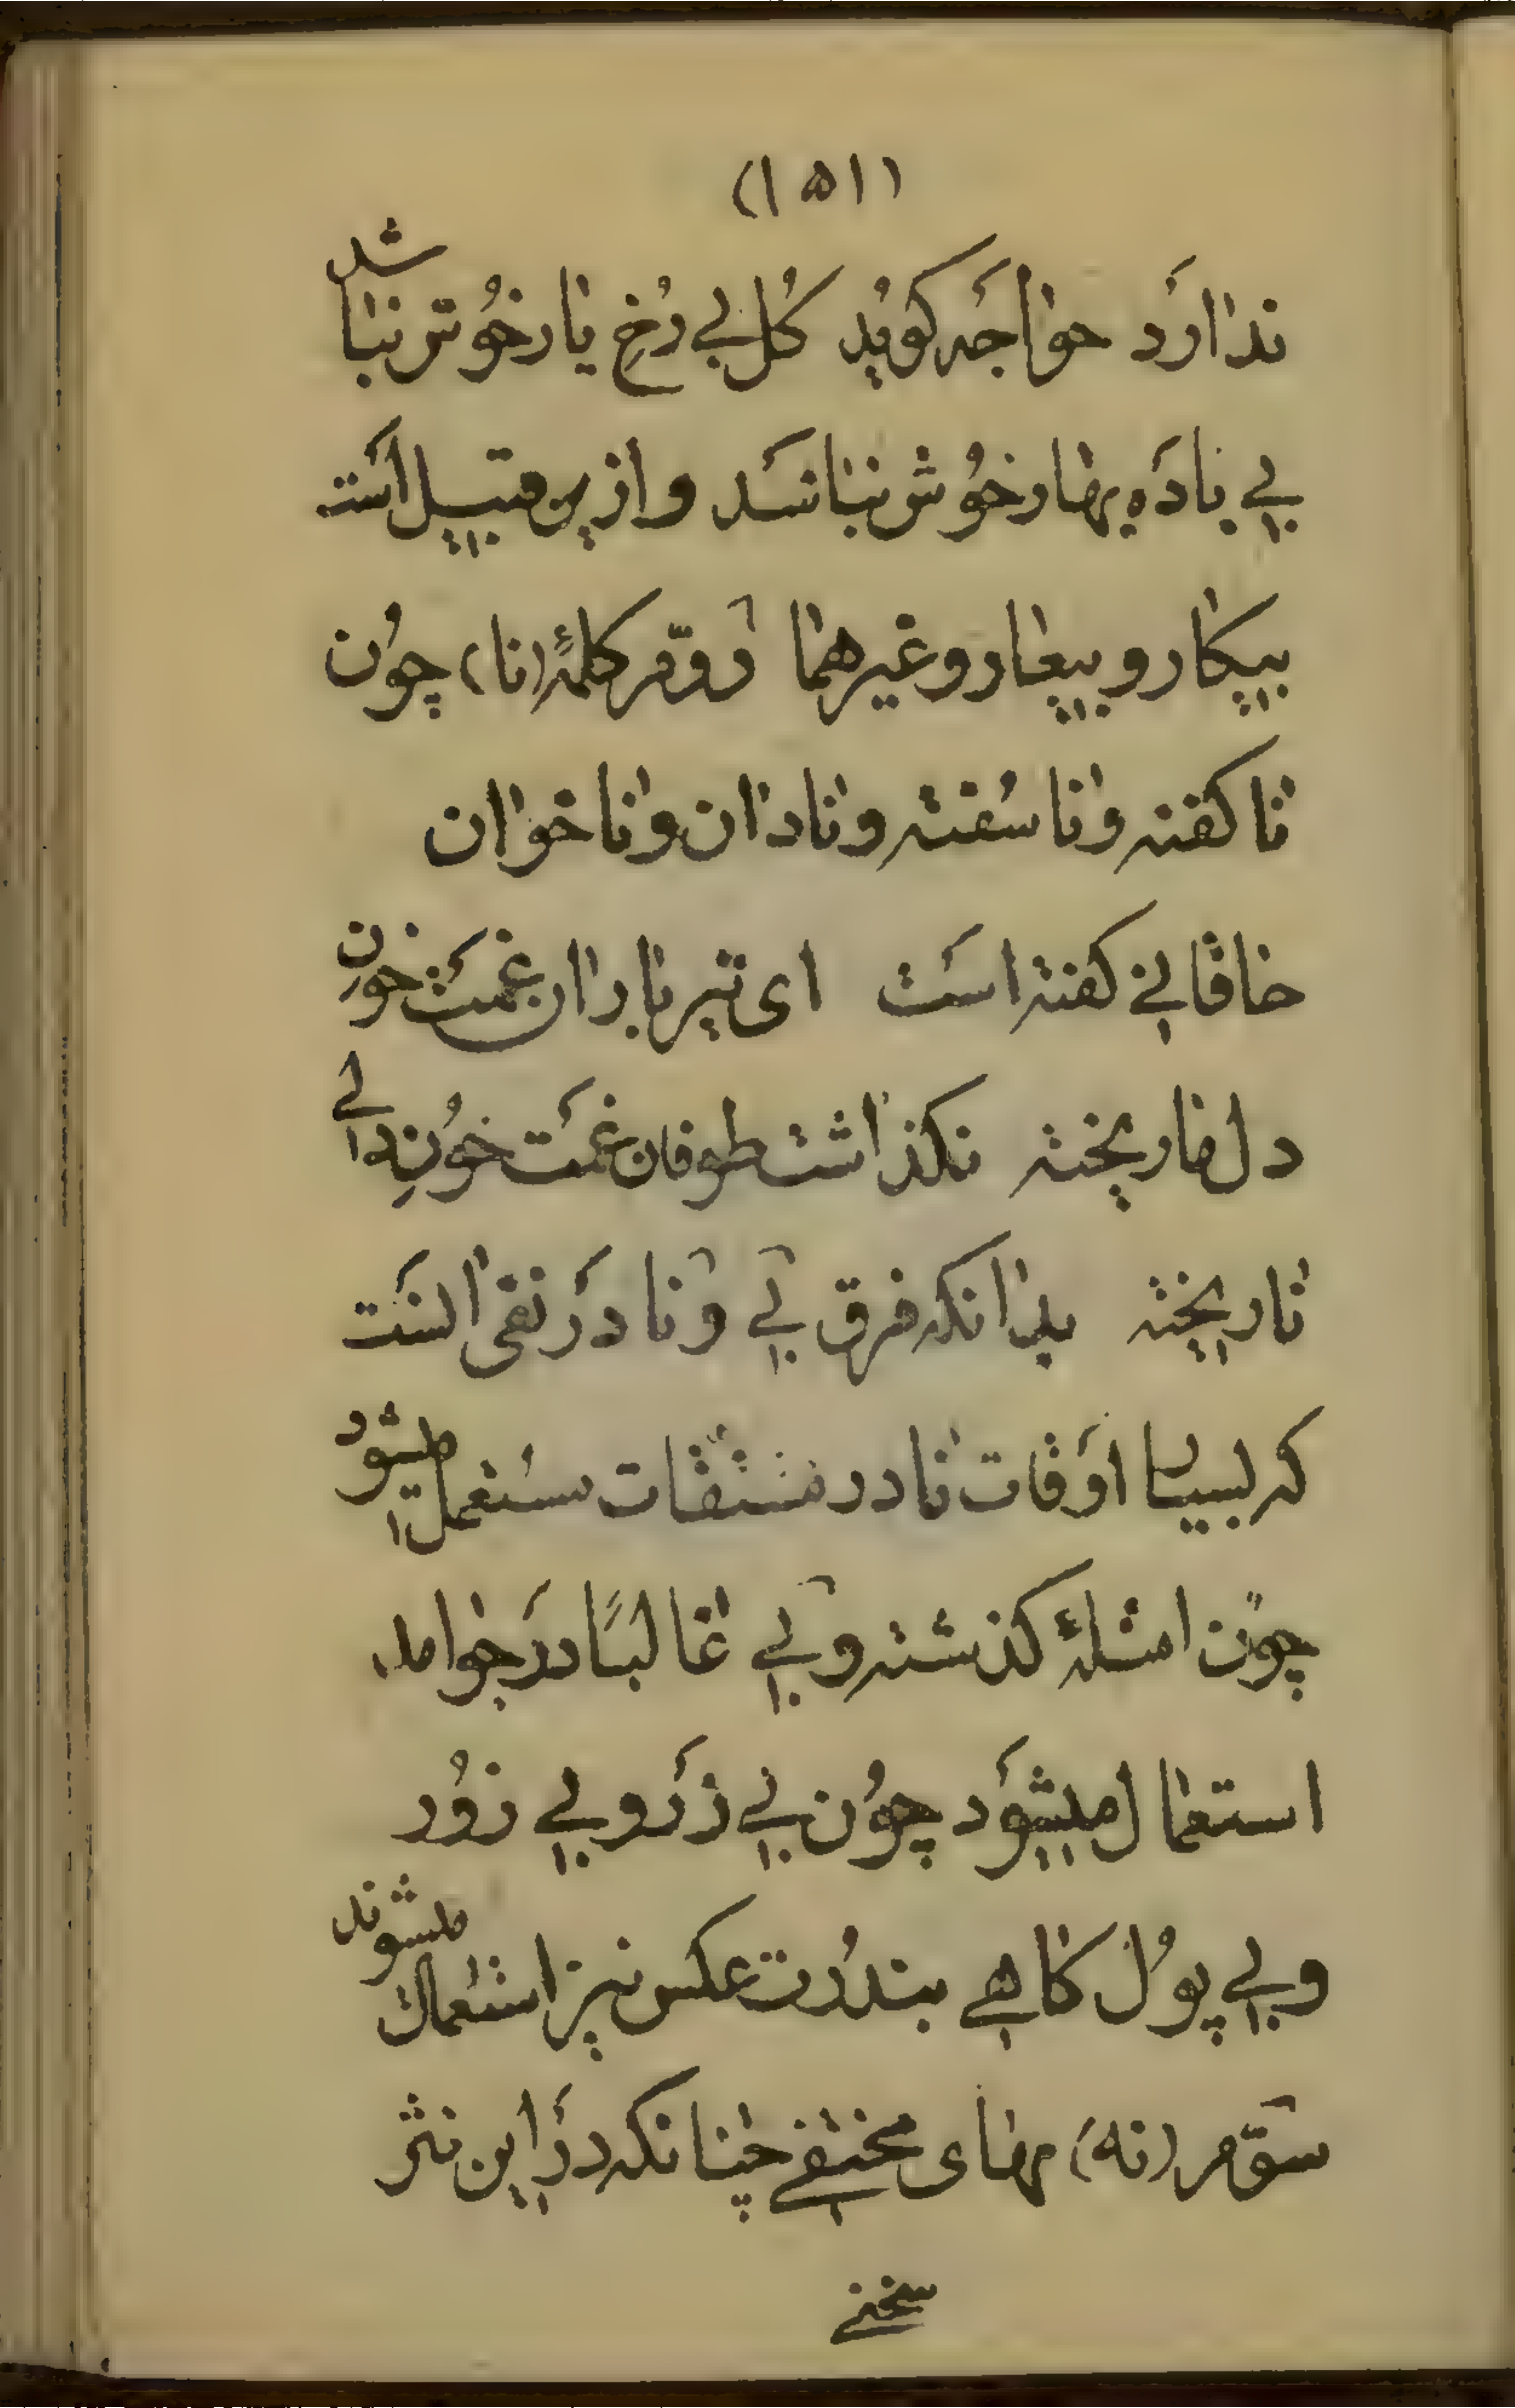 (۱۵۱)
ندارد خواجه کوید کُل بی رُخِ یار خُوش نباشد
بی باده بهار خُوش نباشد و ازین قبیل است
بیکار و بیعار و غیرهما دوّم کلمهٔ (نا) چون
ناکفته و ناسُفته و نادان و ناخوان
خاقانی کفته است ای تیر باران غمت خون
دل ما ریخته نکذاشت طوفان غمت خُونِ دلی
ناریخته بدانکه فرق بی و نا در نفی انست
که بسیار اوقات نا در مشتقات مستعمل میشود
چون امثلهٔ کذشته و بی غالبًا در جوامد
استعمال میشود چون بی زر و بی زور
و بی پول کاهی بندرت عکس نیز استعمال میشوند
سوّم (نه) بهای مختفی چنانکه در این نثر
سخنی